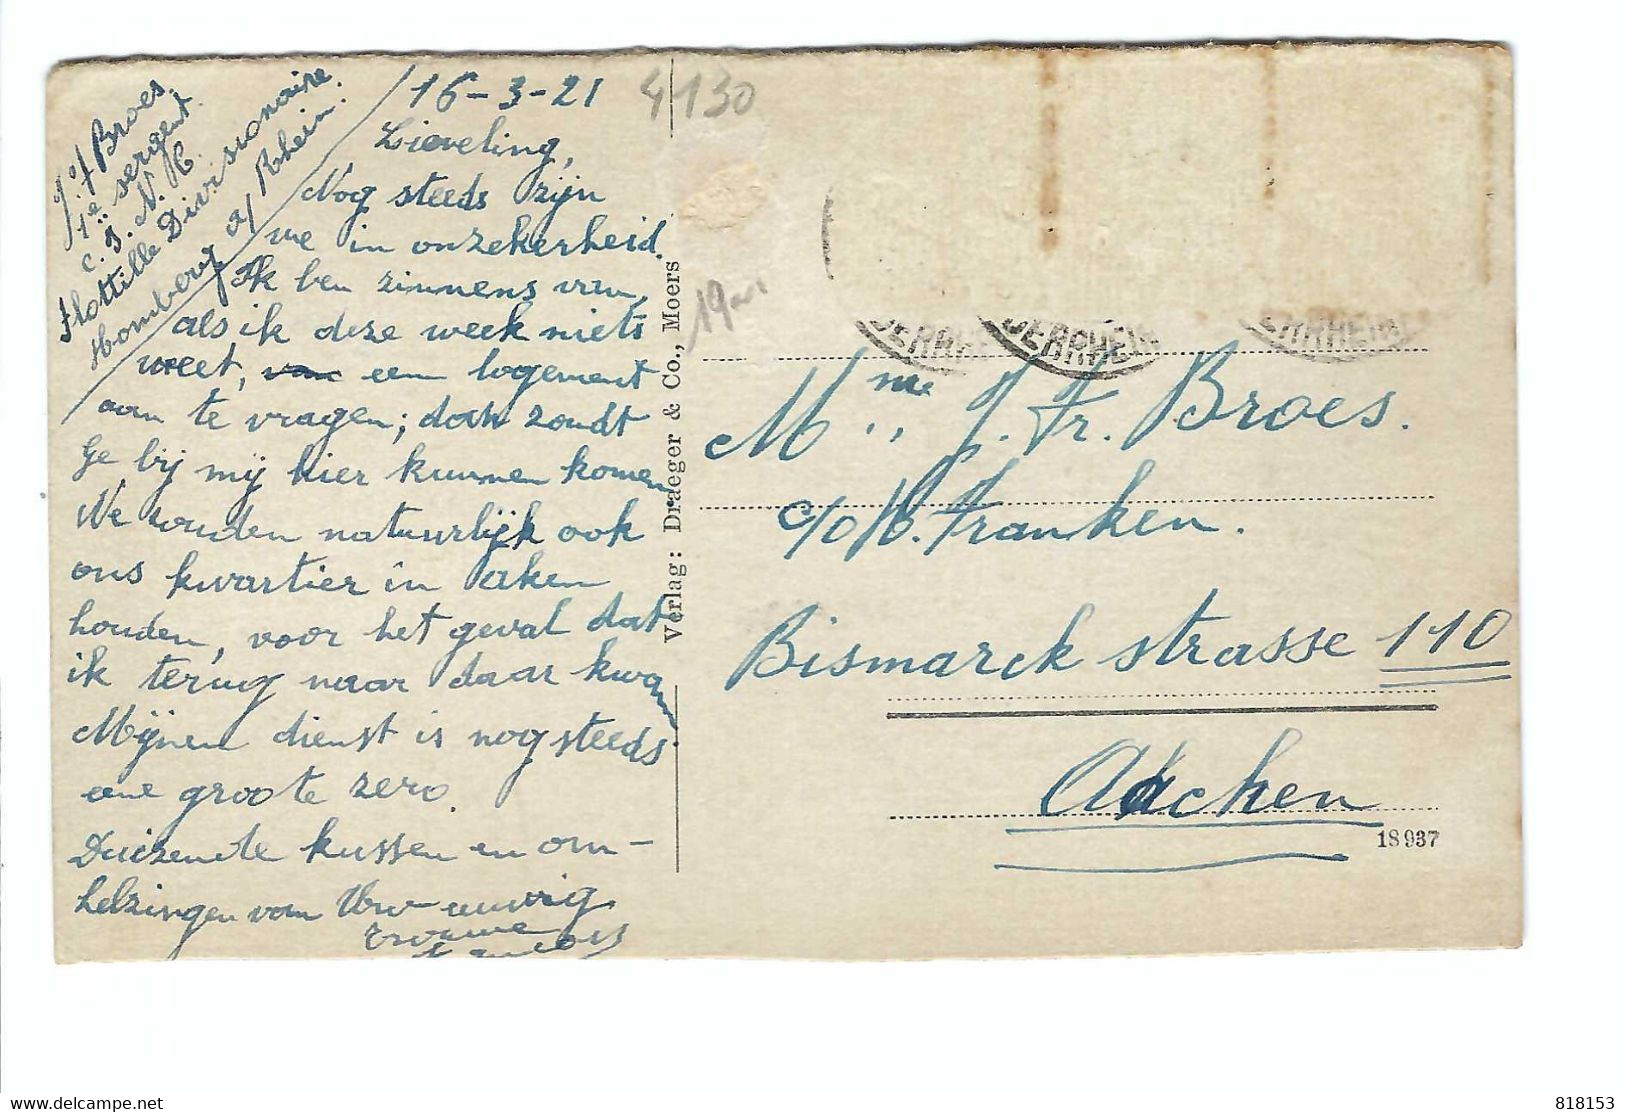 J. f Broes.
1e sergent
C. I. N. H.
Flottille Divisionaire
Homberg a/ Rhein.
16-3-21
Lieveling,
Nog steeds zijn
we in onzekerheid.
Ik ben zinnens van,
als ik deze week niets
weet, van een logement
aan te vragen; dak zoudt
Ge bij mij hier kunnen komen
We zouden natuurlijk ook
ons kwartier in Aken
houden, voor het geval dat
ik terug naar daar kwam
Mijnen dienst is nog steeds
eene groote zero.
Duizende kussen en om-
helzingen van Uw eeuwig
trouwen
4130
19
Verlag: Draeger & Co., Moers
DERRHEIN
ERRHEIN
Mme J. Fr. Broes.
c/o H. Franken.
Bismarck strasse 110
Aachen
18937
www.delcampe.net
karo
818153